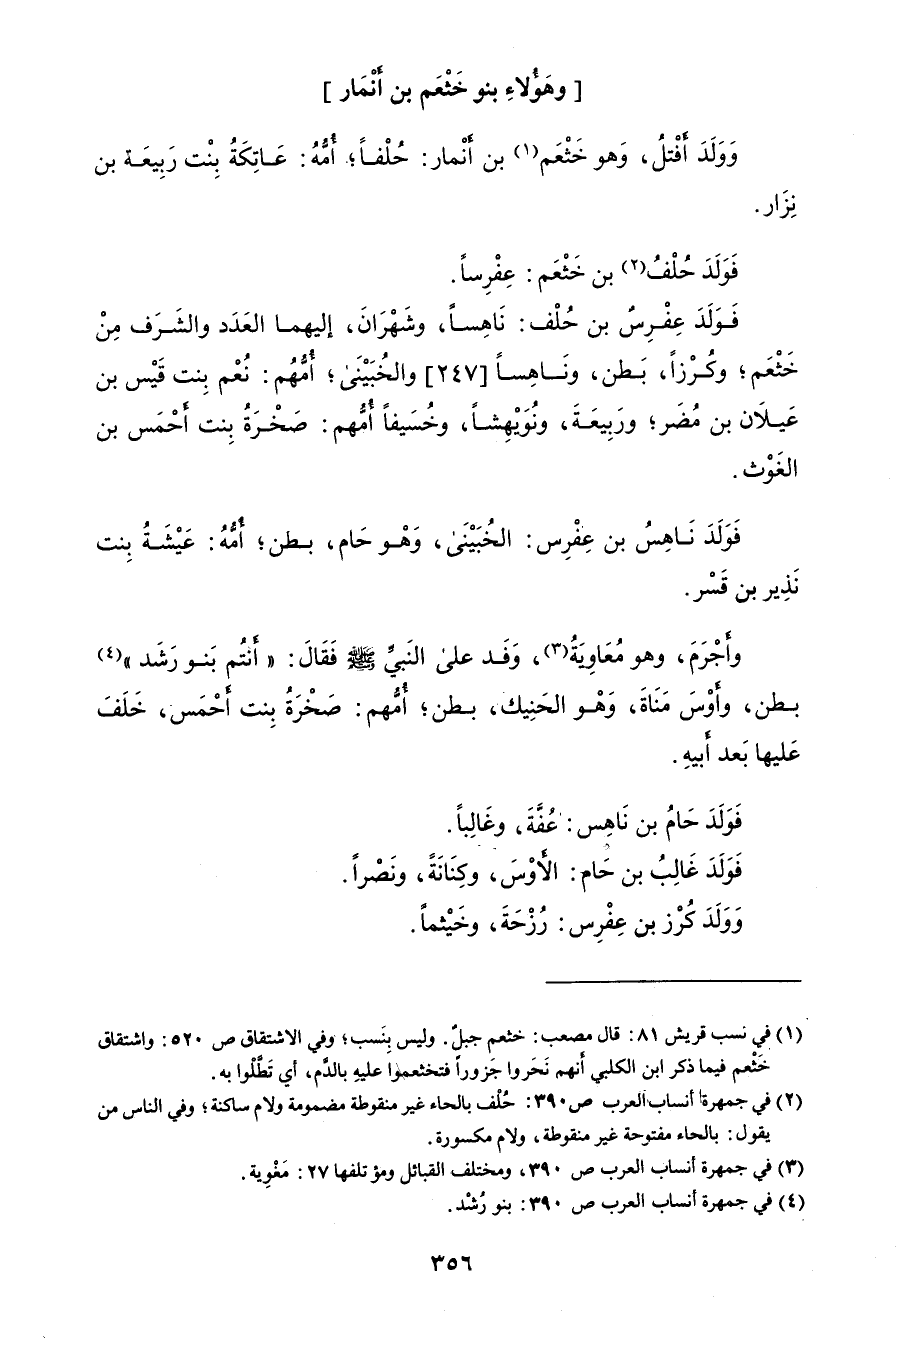 [ وهَؤُلاءِ بنو خَثْعَم بن أَنْمَار ]
وَوَلَدَ أَفْتَلُ، وَهو خَثْعَم(١) بن أَنْمار: حُلْفاً؛ أُمُّهُ: عَاتِكَةُ بِنْت رَبِيعَة بن
نِزَار.
فَوَلَدَ حُلْفُ(٢) بن خَثْعَم: عِفْرِساً.
فَوَلَدَ عِفْرِسُ بن حُلْف: نَاهِساً، وشَهْرَانَ، إليهما العَدَد والشَرَف مِنْ
خَثْعَم؛ وكُرْزاً، بَطن، ونَاهِساً [٢٤٧] والخُبَيْنىٰ؛ أُمُّهُم: نُعْم بِنت قَيْس بن
عَيلَان بن مُضَر؛ ورَبِيعَةَ، ونُوَيْهِشاً، وخُسَيفاً أُمُّهم: صَخْرَةُ بِنت أَحْمَس بن
الغَوْث.
فَوَلَدَ نَاهِسُ بن عِفْرِس: الخُبَيْنَىٰ، وَهْو حَام، بطن؛ أُمُّهُ: عَيْشَةُ بِنت
نَذِير بن قَسْر.
وأَجْرَمَ، وهو مُعَاوِيَةُ(٣)، وَفَد علىٰ النَبيِّ ﷺ فَقَالَ: « أَنتُم بَنو رَشَد »(٤)
بطن، وأَوْسَ مَنَاةَ، وَهْو الحَنِيك، بطن؛ أُمُّهم: صَخْرَةُ بِنت أَحْمَس، خَلَفَ
عَليها بَعد أَبيهِ.
فَوَلَدَ حَامُ بن نَاهِس: عُفَّةَ، وغَالِباً.
فَوَلَدَ غَالِبُ بن حَام: الأَوْسَ، وكِنَانَةً، ونَصْراً.
وَوَلَدَ كُرْز بن عِفْرِس: رُزْحَةَ، وخَيْثماً.
(١) في نسب قريش ٨١: قال مصعب: خثعم جبلٌ. وليس بِنَسب؛ وفي الاشتقاق ص ٥٢٠: واشتقاق
خَثْعم فيما ذكر ابن الكلبي أنهم نَحَروا جَزوراً فتخثعموا عليهِ بالدَّم، أي تَطَّلُوا به.
(٢) في جمهرة أنساب العرب ص٣٩٠: حُلْف بالحاء غير منقوطة مضمومة ولام ساكنة؛ وفي الناس من
يقول: بالحاء مفتوحة غير منقوطة، ولام مكسورة.
(٣) في جمهرة أنساب العرب ص ٣٩٠، ومختلف القبائل ومؤتلفها ٢٧: مَغْوِية.
(٤) في جمهرة أنساب العرب ص ٣٩٠: بنو رُشْد.
٣٥٦